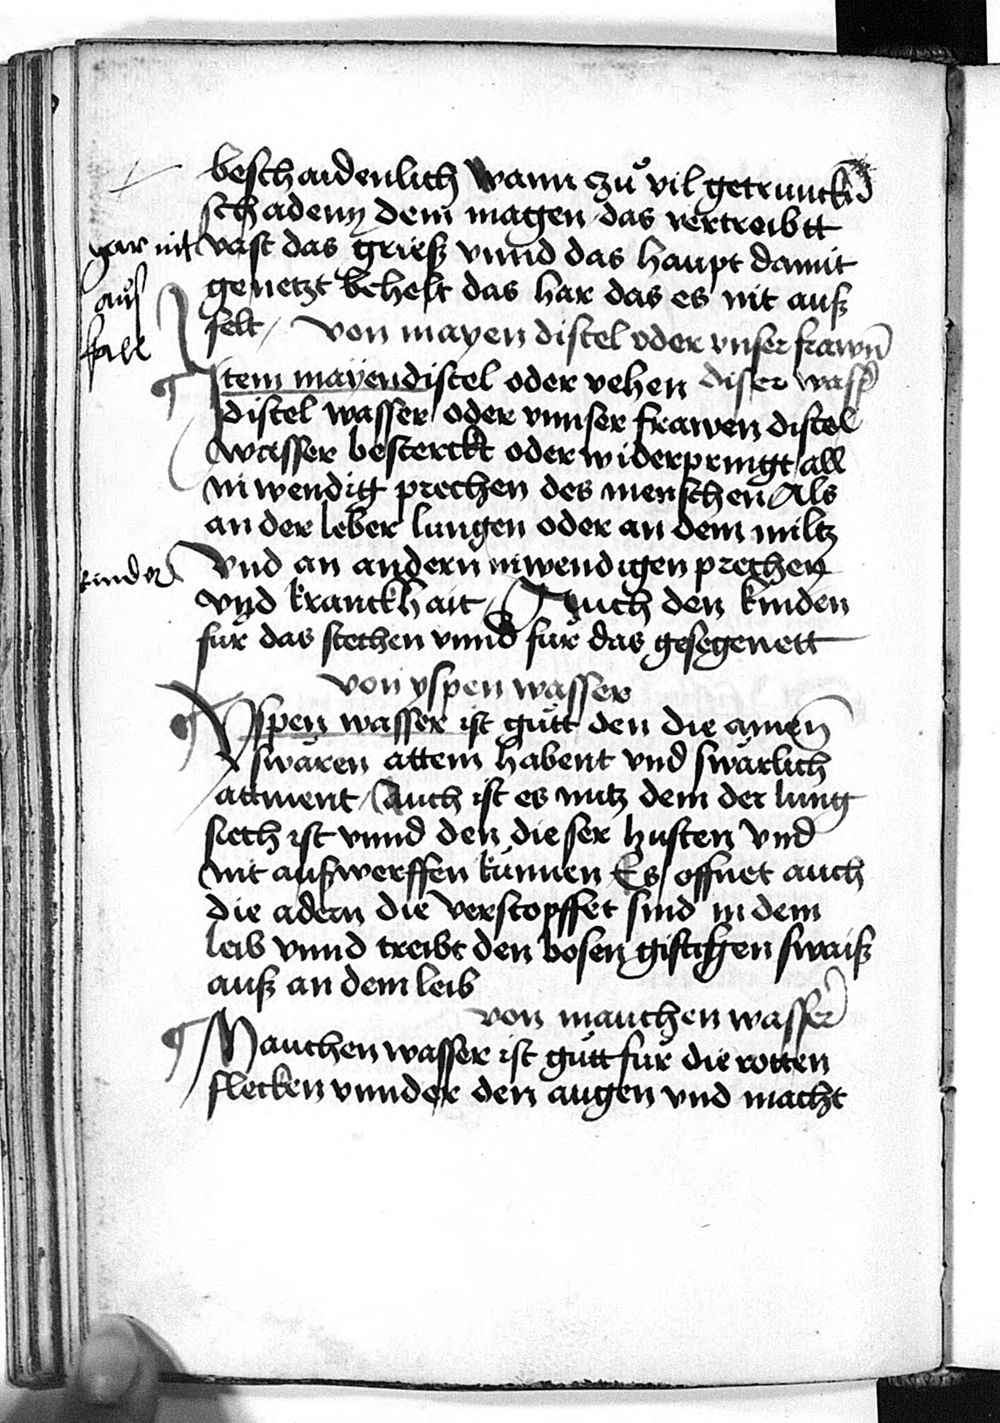 beschaidenlich wann zuͦ vil getrunckñ
schadent dem magen das vertreibtt
gar nit
vast das grieß vnnd das haupt damit
genetzt behelt das har das es nit auß
auß
felt / von mayen distel oder vnser frawñ
fall
Item mayendistel oder vehen diser wasser
distel wasser oder vnnser frawen distel
wasser besterckt oder widerpringt all
inwendig prechen des menschen Als
an der leber lungen oder an dem miltz
kinder
Vnd an andern inwendigen prechen
vnd kranckhait Auch den kinden
fur das stechen vnnd fur das gesegenett
von yspen wasser
Yspen wasser ist gutt den die ainen
swären attem habent vnd swärlich
attment / Auch ist es nutz dem der lung
siech ist vnnd den die ser husten vnd
nit außwerffen künnen Es offnet auch
die adern die verstopffet sind in dem
leib vnnd treibt den bosen gifftigen swaiß
auß an dem leib
von mauchen wasser
Mauchen wasser ist gutt fur die rotten
flecken vnnder den augen vnd macht